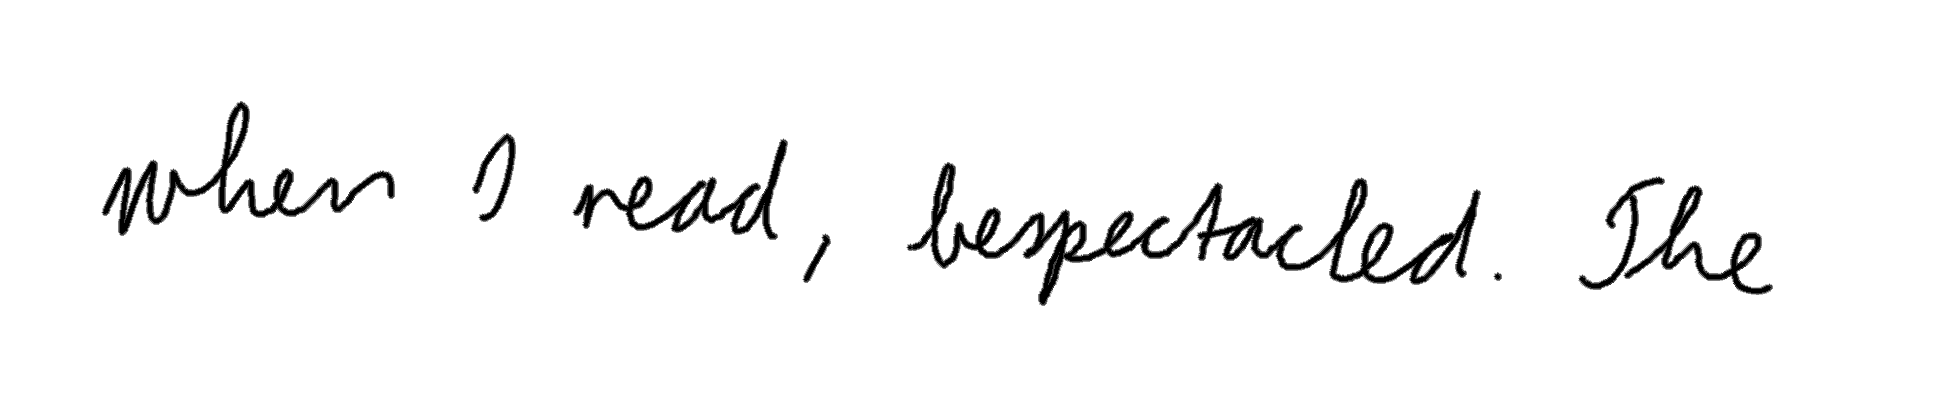 when I read, bespectacled. The